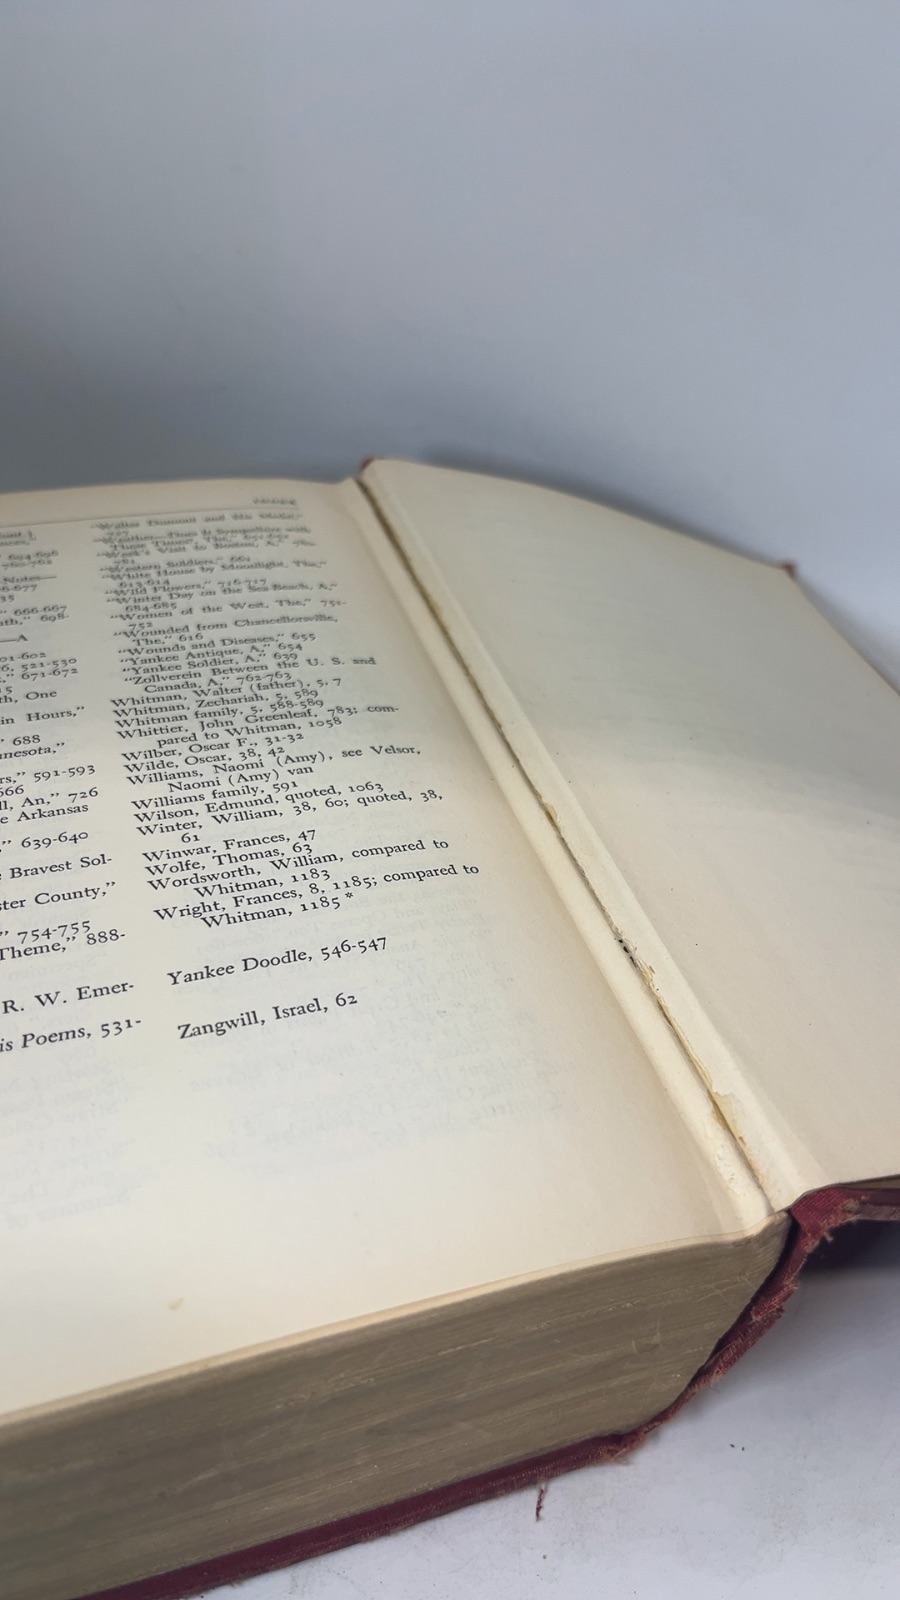 INDEX
hant]
694-696
760-762
Notes—
6-677
35
" 666-667
ath," 698-
—A
01-602
6, 521-530
," 671-672
15
th, One
in Hours,"
" 688
nnesota,"
rs," 591-593
666
ll, An," 726
e Arkansas
," 639-640
e Bravest Sol-
ster County,"
" 754-755
Theme," 888-
R. W. Emer-
is Poems, 531-
"Walter Dumont and his Medal,"
"Weather—Does It Sympathize with
These Times? The,"
"Week's Visit to Boston, A," 760-
761
"Western Soldiers," 661
"White House by Moonlight, The,"
613-614
"Wild Flowers," 716-717
"Winter Day on the Sea-Beach, A,"
684-685
"Women of the West, The," 751-
752
"Wounded from Chancellorsville,
The," 616
"Wounds and Diseases," 655
"Yankee Antique, A," 654
"Yankee Soldier, A," 639
"Zollverein Between the U. S. and
Canada, A," 762-763
Whitman, Walter (father), 5, 7
Whitman, Zechariah, 5, 589
Whitman family, 5, 588-589
Whittier, John Greenleaf, 783; com-
pared to Whitman, 1058
Wilber, Oscar F., 31-32
Wilde, Oscar, 38, 42
Williams, Naomi (Amy), see Velsor,
Naomi (Amy) van
Williams family, 591
Wilson, Edmund, quoted, 1063
Winter, William, 38, 60; quoted, 38,
61
Winwar, Frances, 47
Wolfe, Thomas, 63
Wordsworth, William, compared to
Whitman, 1183
Wright, Frances, 8, 1185; compared to
Whitman, 1185 *
Yankee Doodle, 546-547
Zangwill, Israel, 62